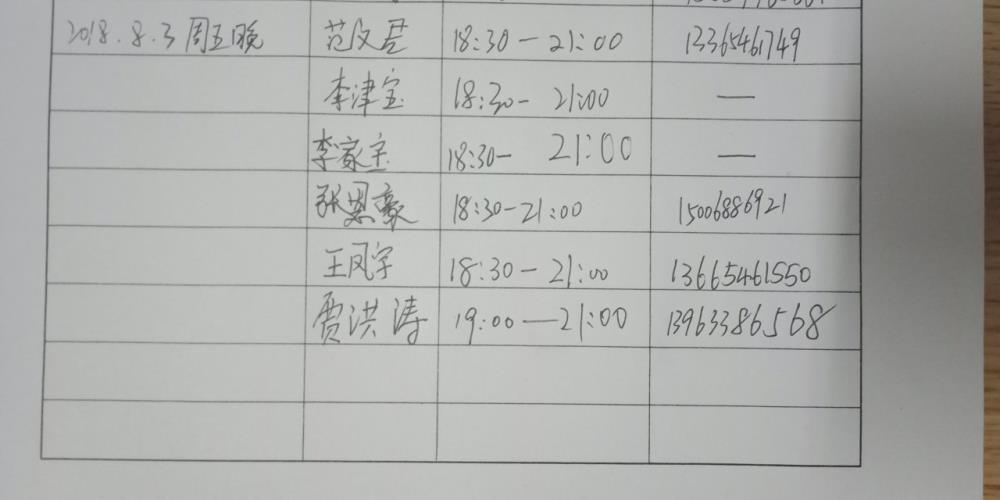 2018.8.3周五晚 范文君 18:30-21:00 13365461749
李津宝 18:30-21:00 —
李家宝 18:30-21:00 —
张恩豪 18:30-21:00 15006886921
王凤宇 18:30-21:00 13665461550
贾洪涛 19:00—21:00 13963386568